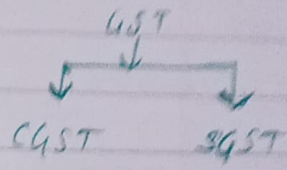 GST
CGST SGST